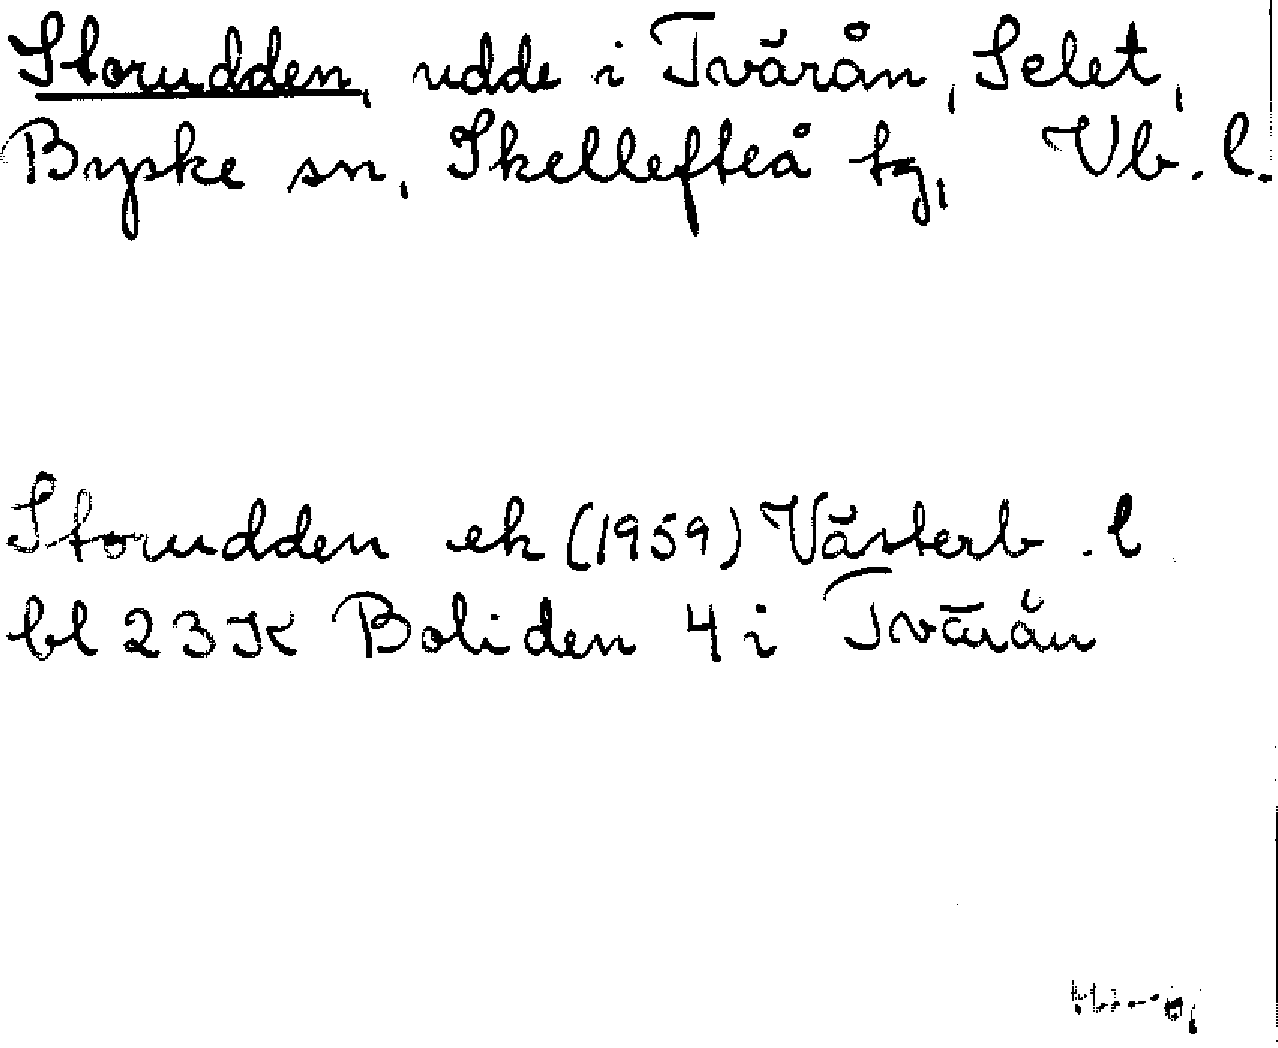 Storudden, udde i Tvärån, Selet,
Byske sn, Skellefteå tg, Vb. l.
Storudden ek (1959) Västerb. l
bl 23K Boliden 4 i Tvärån